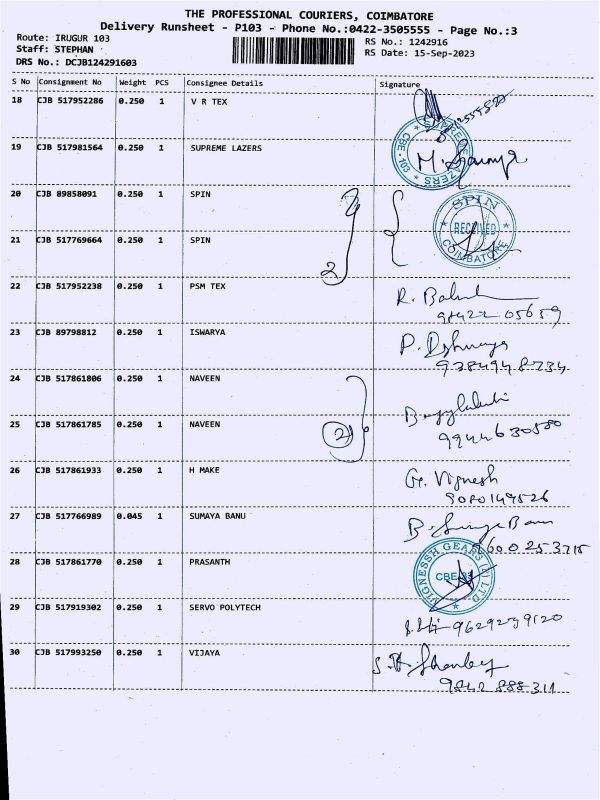 THE PROFESSIONAL COURIERS, COIMBATORE
Delivery Runsheet - P103 - Phone No.:0422-3505555 - Page No.:3
Route: IRUGUR 103
RS No.: 1242916
Staff: STEPHAN
RS Date: 15-Sep-2023
DRS No.: DCJB124291603
S No Consignment No Weight PCS Consignee Details Signature
18 CJB 517952286 0.250 1 V R TEX
19 CJB 517981564 0.250 1 SUPREME LAZERS
SUPREME LAZERS
CBE-103
20 CJB 89858091 0.250 1 SPIN
SPIN
RECEIVED
COIMBATORE
21 CJB 517769664 0.250 1 SPIN
2
22 CJB 517952238 0.250 1 PSM TEX
R.
98422 05659
23 CJB 89798812 0.250 1 ISWARYA
P.
24 CJB 517861806 0.250 1 NAVEEN
25 CJB 517861785 0.250 1 NAVEEN
2
26 CJB 517861933 0.250 1 H MAKE
G. Vignesh
27 CJB 517766989 0.045 1 SUMAYA BANU
28 CJB 517861770 0.250 1 PRASANTH
VIGNESSH GEARS (P) LTD
29 CJB 517919302 0.250 1 SERVO POLYTECH
9629239120
30 CJB 517993250 0.250 1 VIJAYA
9842 888 311